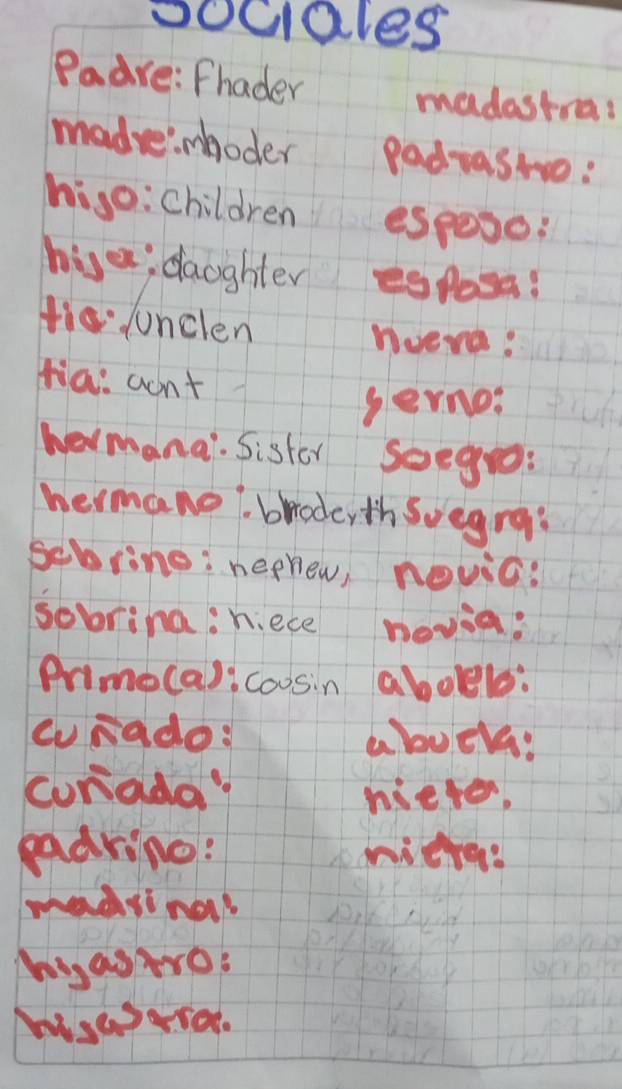 Sociales
Padre: Fhader
madre: mhoder
hijo: children
hija: daughter
tio: unclen
tia: aont
hermana: Sister
hermano: bhoderth
sobrino: nephew,
sobrina: niece
Primo(a): coosin
cuñado:
cuñada:
padrino:
madrina:
hijastro:
hijastra.
madastra:
Padrastro:
esposo:
esposa:
nuera:
yerno:
Soegro:
Suegra:
novio:
novia:
abuelo:
abuela:
nieto.
nieta: